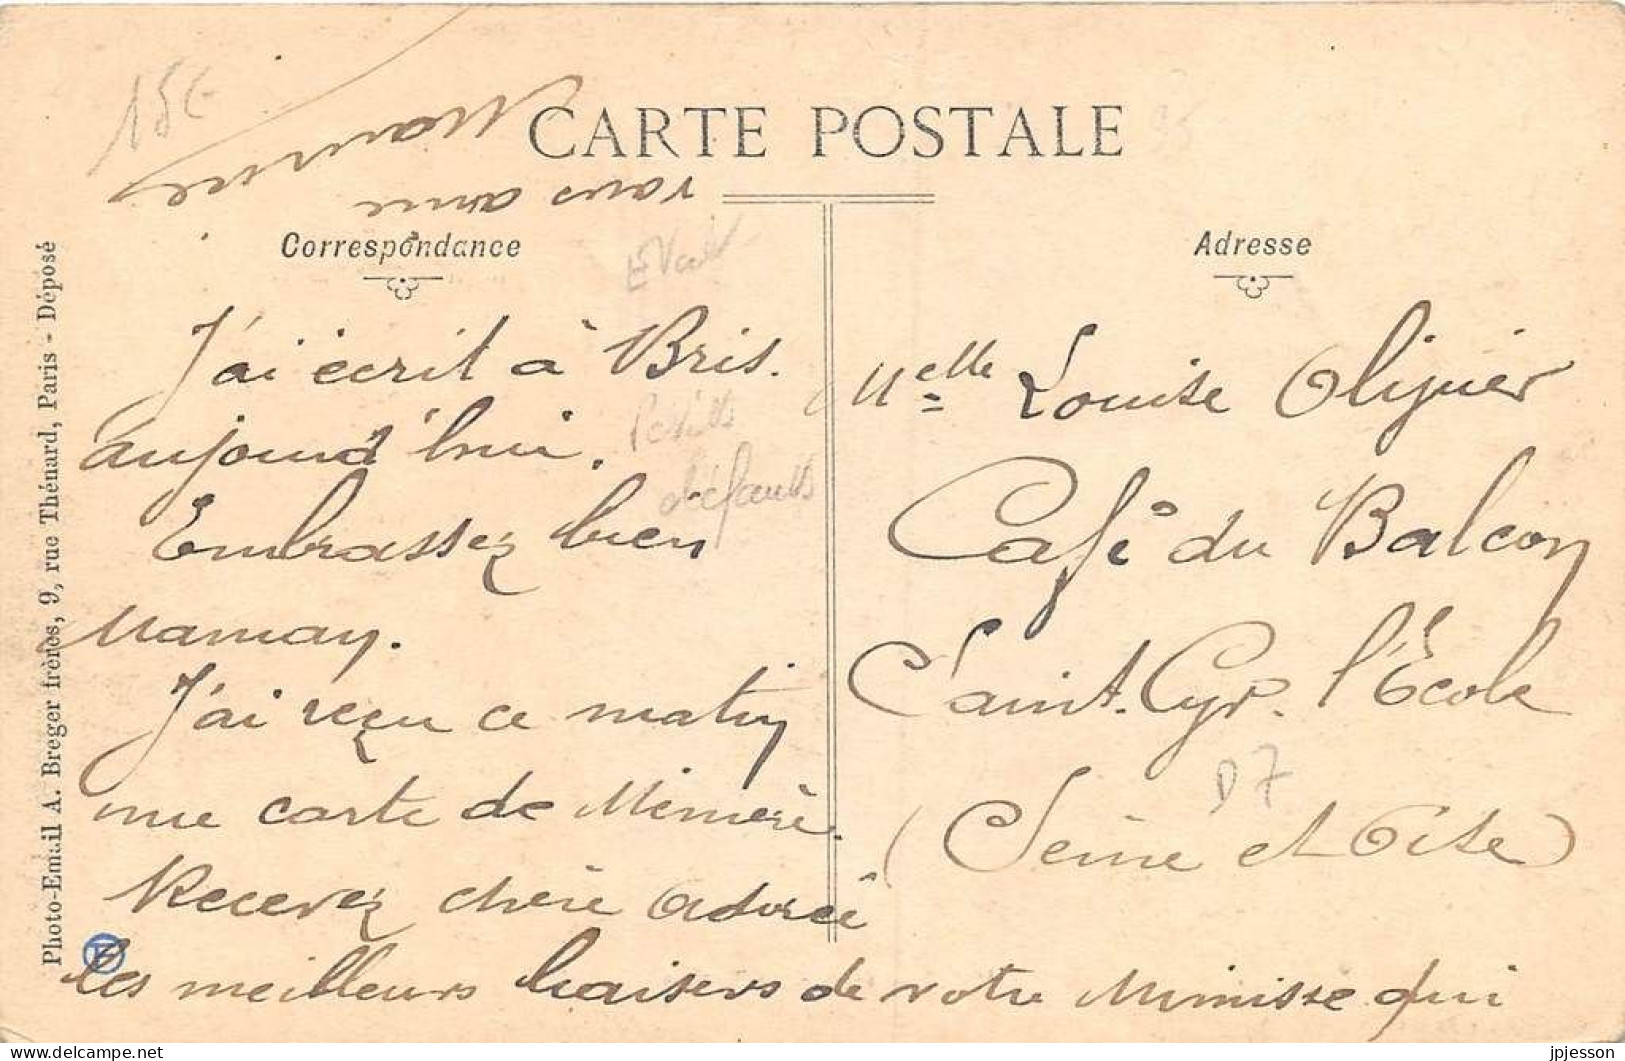 15€
CARTE POSTALE
95
Correspondance
Adresse
Photo-Email A. Breger frères, 9, rue Thénard, Paris - Déposé
J'ai écrit à Bris.
aujourd'hui.
Embrassez bien
Maman.
J'ai reçu ce matin
une carte de Mémère.
Recevez chère adorée
les meilleurs baisers de votre Mimisse qui
vous aime
Maurice
petits
défauts
Melle Louise Oliguier
Café du Balcon
Saint. Cyr. l'École
(Seine et Oise)
D7
jpjesson